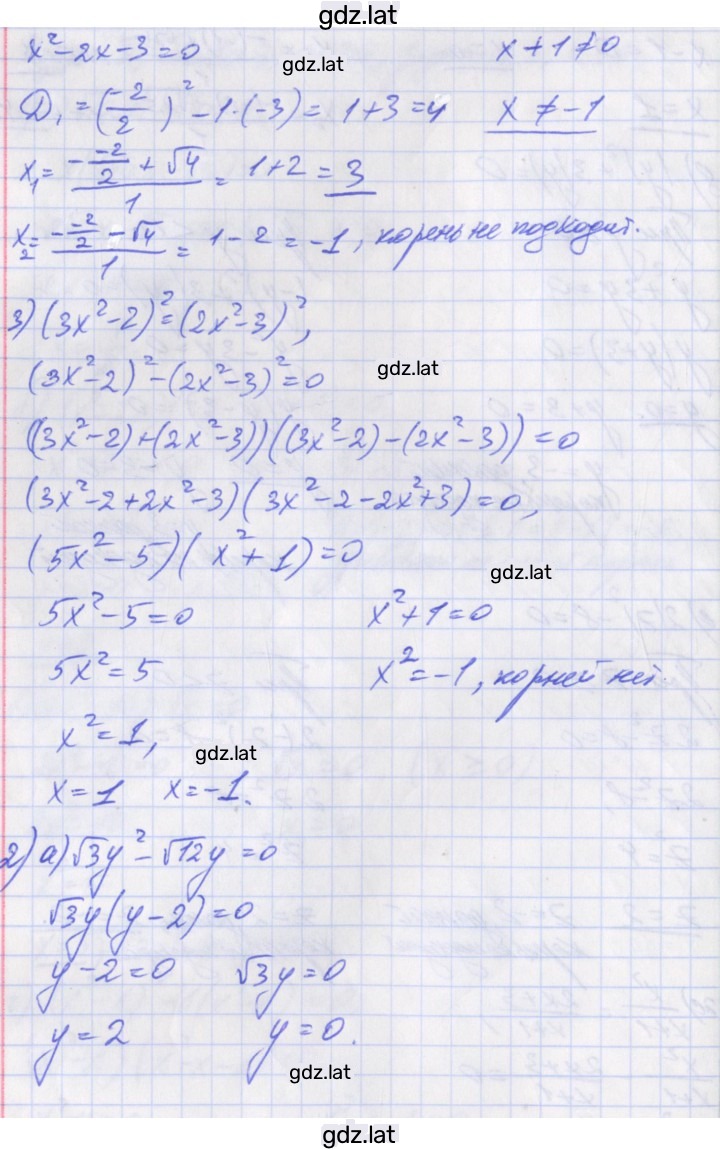 gdz.lat
x² - 2x - 3 = 0    x + 1 ≠ 0
gdz.lat
D₁ = (-2/2)² - 1·(-3) = 1 + 3 = 4    x ≠ -1
x₁ = (-(-2/2) + √4)/1 = 1 + 2 = 3
x₂ = (-(-2/2) - √4)/1 = 1 - 2 = -1, корень не подходит.
3) (3x² - 2)² = (2x² - 3)²,
(3x² - 2)² - (2x² - 3)² = 0
gdz.lat
((3x² - 2) + (2x² - 3))((3x² - 2) - (2x² - 3)) = 0
(3x² - 2 + 2x² - 3)(3x² - 2 - 2x² + 3) = 0,
(5x² - 5)(x² + 1) = 0
gdz.lat
5x² - 5 = 0    x² + 1 = 0
5x² = 5    x² = -1, корней нет.
x² = 1,
gdz.lat
x = 1    x = -1.
2) а) √3y² - √12y = 0
√3y(y - 2) = 0
y - 2 = 0    √3y = 0
y = 2    y = 0.
gdz.lat
gdz.lat